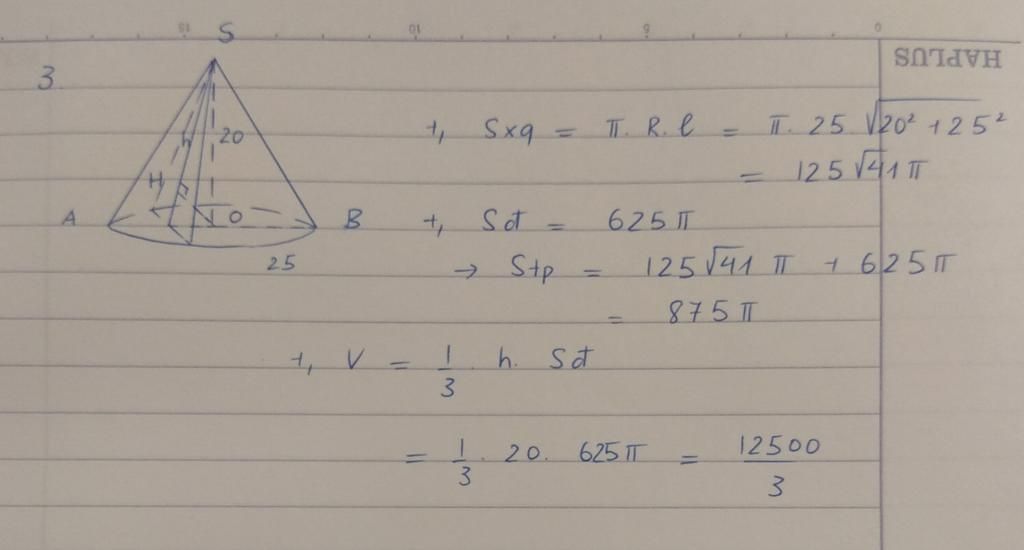 15 10 5 0
HAPLUS
3.
S
h 20
H
A O B
25
+, Sxq = π. R. l = π. 25 √20² + 25²
= 125√41 π
+, Sđ = 625π
→ Stp = 125√41 π + 625π
= 875π
+, V = 1/3 . h. Sđ
= 1/3 . 20. 625π = 12500/3